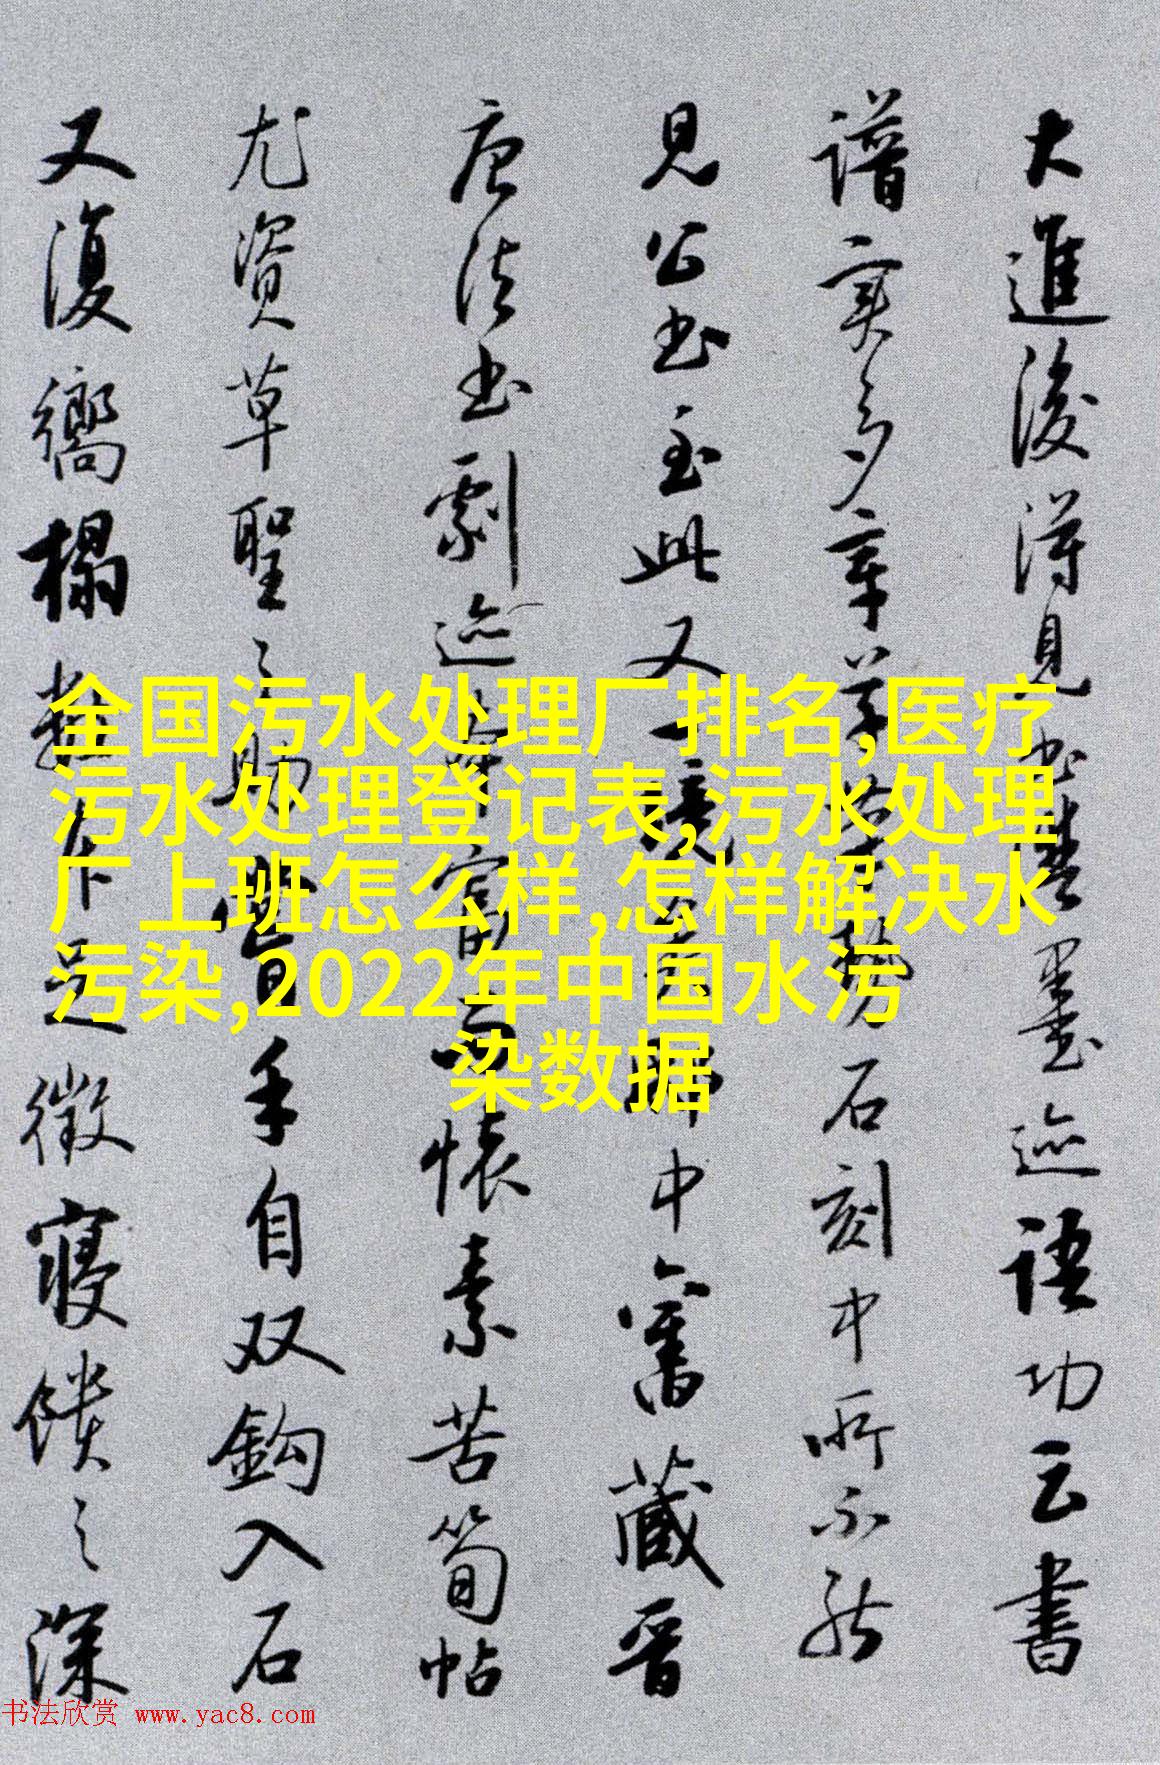 大進後得見墨迹語功云書
譜實多章草势石刻中所不能
見公书至此又一境中舊藏晉
唐法书劇迹懷素苦筍帖
尤資草聖之助皆手自双鈎入石
又復嚮榻足徵寢饋之深
全国污水处理厂排名,医疗
污水处理登记表,污水处理
厂上班怎么样,怎样解决水
污染,2022年中国水污
染数据
书法欣赏 www.yac8.com